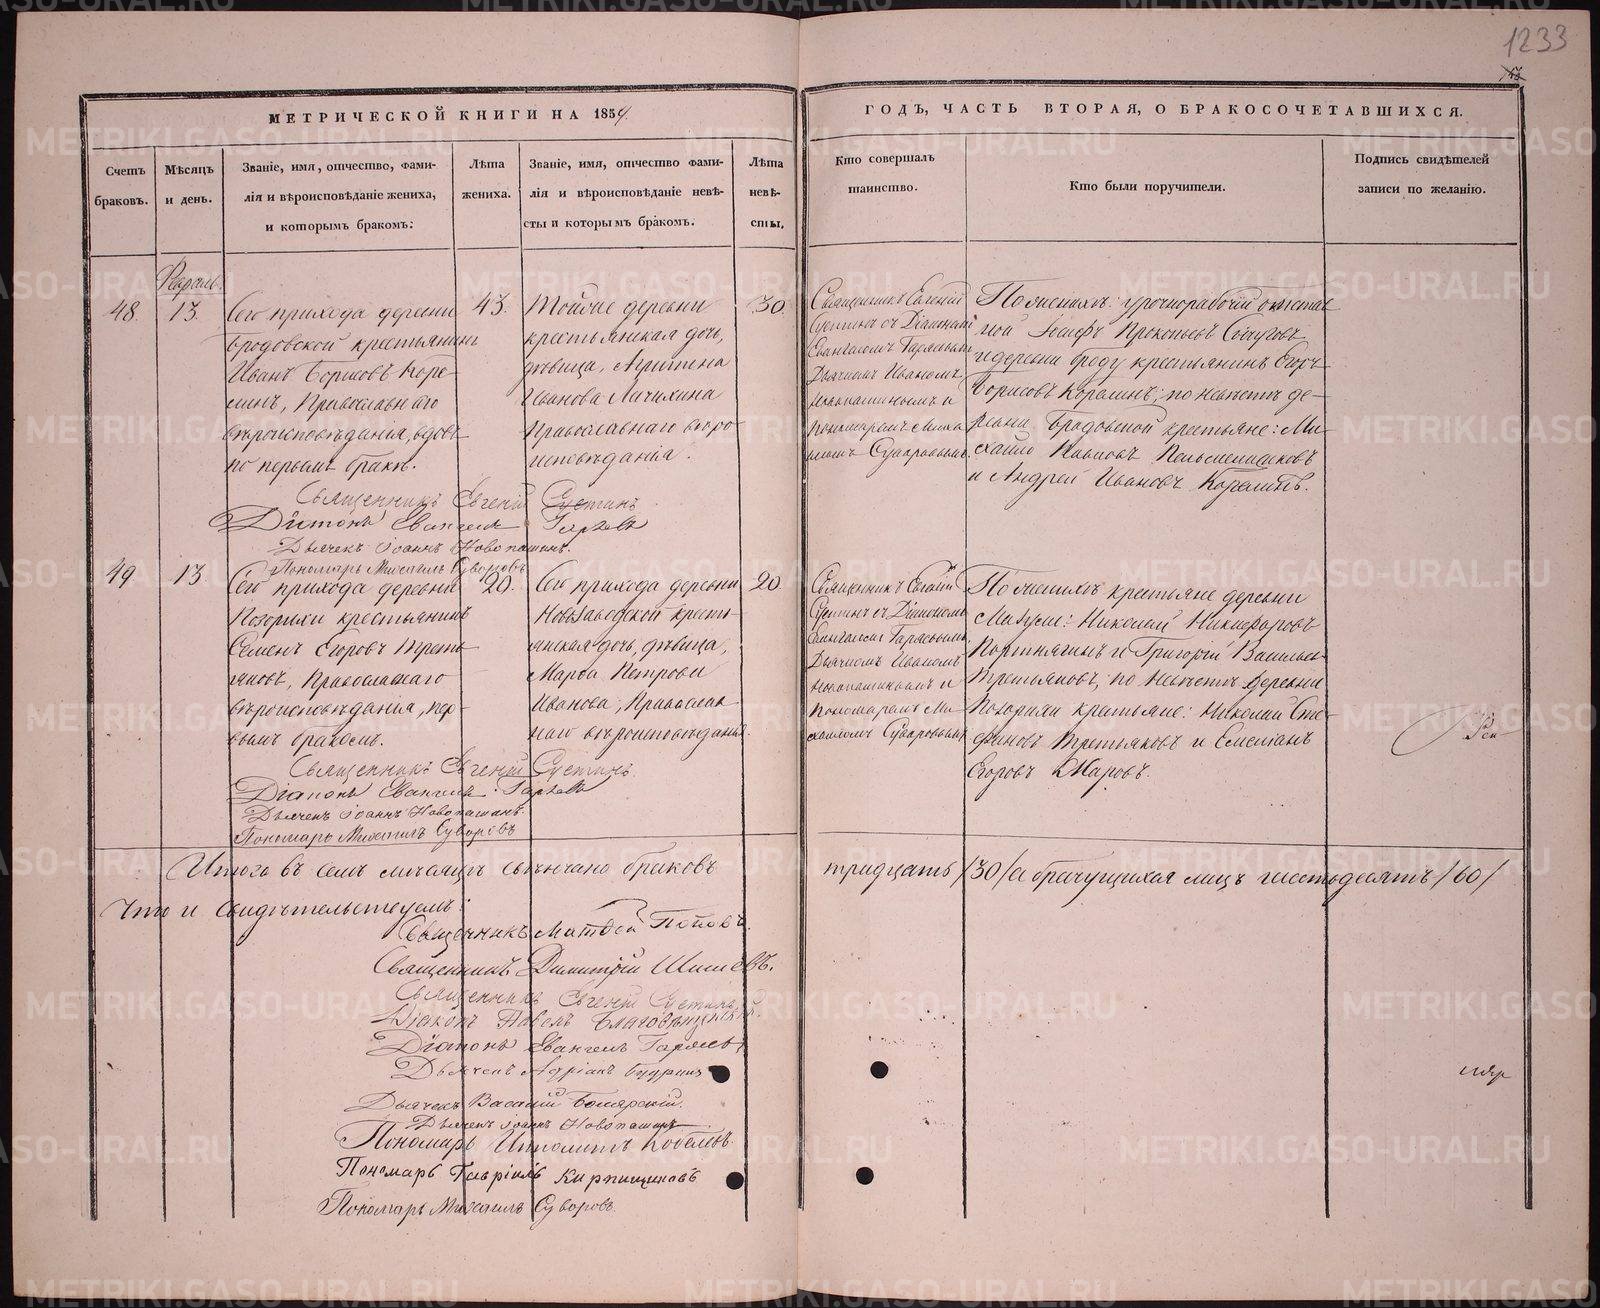 1233
МЕТРИЧЕСКОЙ КНИГИ НА 1854
ГОДЪ, ЧАСТЬ ВТОРАЯ, О БРАКОСОЧЕТАВШИХСЯ.
Счетъ
браковъ.
Мѣсяцъ
и день.
Званіе, имя, отчество, фами-
лія и вѣроисповѣданіе жениха,
и которымъ бракомъ:
Лѣта
жениха.
Званіе, имя, отчество фами-
лія и вѣроисповѣданіе невѣ-
сты и которымъ бракомъ.
Лѣта
невѣ-
сты.
Кто совершалъ
таинство.
Кто были поручители.
Подпись свидѣтелей
записи по желанію.
48.
13.
Сего прихода деревни
Бродовской крестьянинъ
Иванъ Борисовъ Коре-
линъ, Православнаго
вѣроисповѣданія, вдовъ
по первомъ бракѣ.
43.
Тойже деревни
крестьянская дочь,
дѣвица, Агрипена
Иванова
Православнаго вѣро-
исповѣданія.
30.
Священникъ Евгеній
съ Діакономъ
Евангеломъ
Дьячкомъ Иваномъ
Новопашинымъ и
Пономаремъ Миха-
иломъ Суворовымъ
По женихѣ: урочнорабочій
Іосифъ Прокопьевъ
и деревни Броду крестьянинъ Егоръ
Борисовъ Корелинъ; по невѣстѣ де-
ревни Бродовской крестьяне: Ми-
хайло Павловъ
и Андрей Ивановъ Корелинъ.
Священникъ Евгеній
Діаконъ Евангелъ
Дьячекъ Іоаннъ Новопашинъ.
Пономарь Михаилъ Суворовъ
49
13
Сего прихода деревни
Позорихи крестьянинъ
Семенъ Егоровъ Треть-
яковъ, Православнаго
вѣроисповѣданія, пер-
вымъ бракомъ.
20.
Сего прихода деревни
Новозаводской кресть-
янская дочь, дѣвица,
Марѳа Петрова
Иванова, Православ-
наго вѣроисповѣданія.
20
Священникъ Евгеній
съ Діакономъ
Евангеломъ
Дьячкомъ Иваномъ
Новопашинымъ и
Пономаремъ Ми-
хаиломъ Суворовымъ
По женихѣ крестьяне деревни
Мазули: Николай Никифоровъ
Портнягинъ и Григорій Васильевъ
Третьяковъ; по невѣстѣ деревни
Позорихи крестьяне: Николай Сте-
фановъ Третьяковъ и Емеліанъ
Егоровъ
Священникъ Евгеній
Діаконъ Евангелъ
Дьячекъ Іоаннъ Новопашинъ.
Пономарь Михаилъ Суворовъ
Итого въ семъ мѣсяцѣ свѣнчано браковъ тридцать /30/ а брачущихся лицъ шестьдесятъ /60/
Что и свидѣтельствуемъ:
Священникъ Матвей Поповъ.
Священникъ Димитрій Шишевъ.
Священникъ Евгеній
Діаконъ Павелъ Благовѣщенскій
Діаконъ Евангелъ
Дьячекъ Адріанъ
Дьячекъ Василій Боярскій.
Дьячекъ Іоаннъ Новопашинъ
Пономарь Ипполитъ
Пономарь Гавріилъ Кирпищиковъ
Пономарь Михаилъ Суворовъ.
METRIKI.GASO-URAL.RU